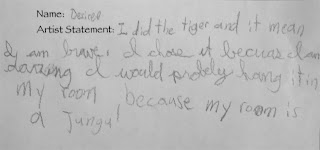 Name: Desiree
Artist Statement: I did the tiger and it mean
I am brave. I chose it becuas I am
darzing I would probely hang it in
my room because my room is
a Jungu!